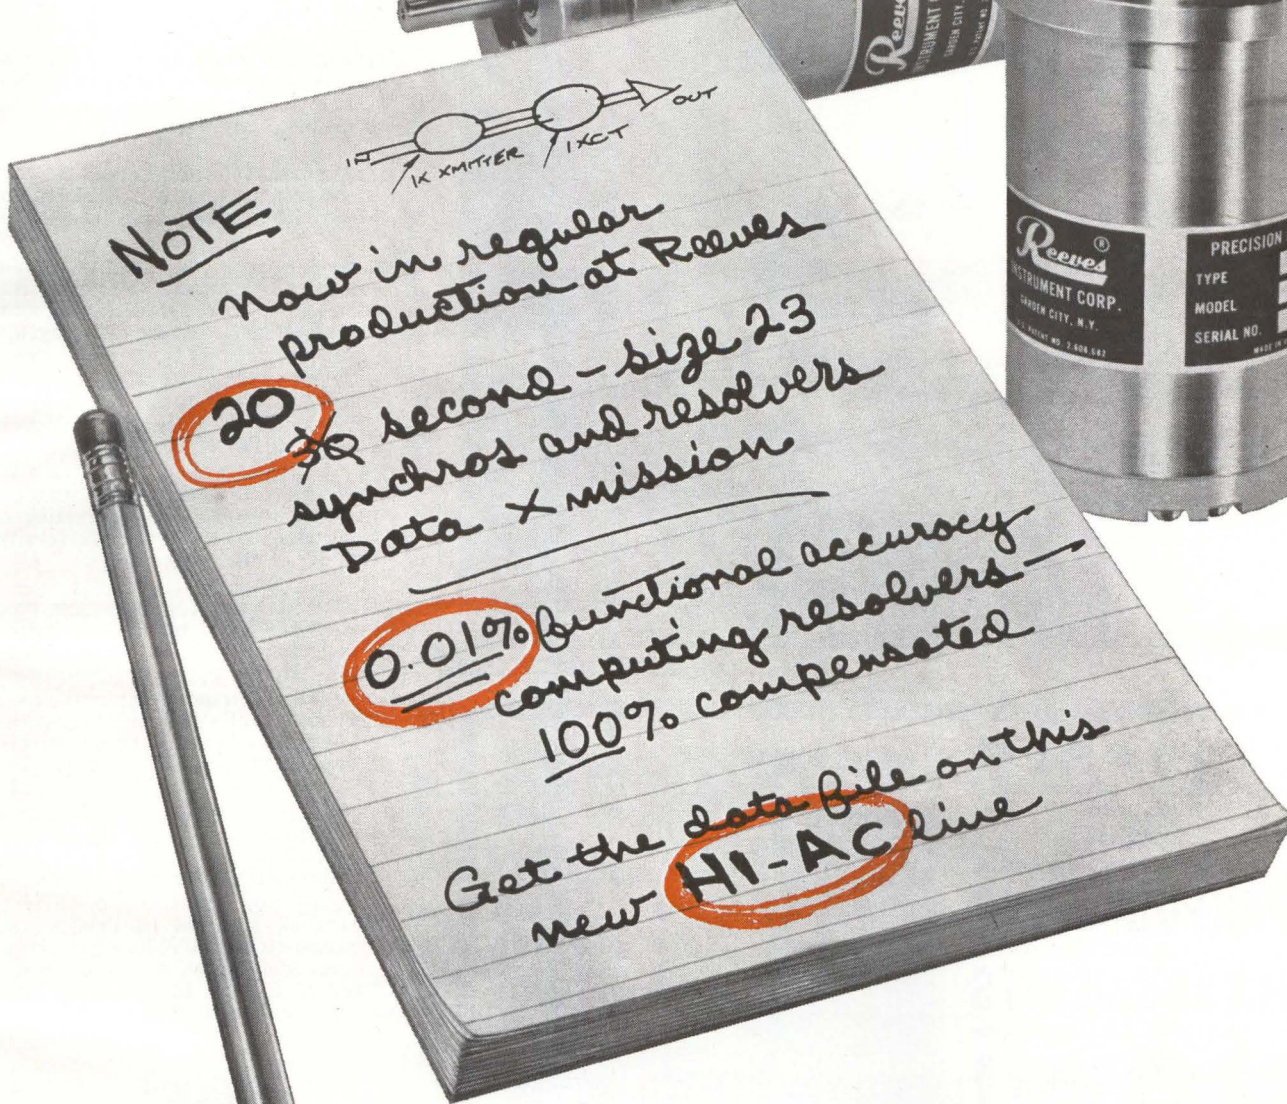 Reeves
INSTRUMENT
GARDEN CITY,
IN
1X XMITTER
1XCT
OUT
NOTE
Now in regular
production at Reeves
20
30 second - size 23
synchros and resolvers
Data Xmission
0.01% functional accuracy
computing resolvers—
100% compensated
Get the data file on this
new HI-AC line
Reeves ®
INSTRUMENT CORP.
GARDEN CITY, N.Y.
U.S. PATENT NO. 2,608,682
PRECISION
TYPE
MODEL
SERIAL NO.
MADE IN